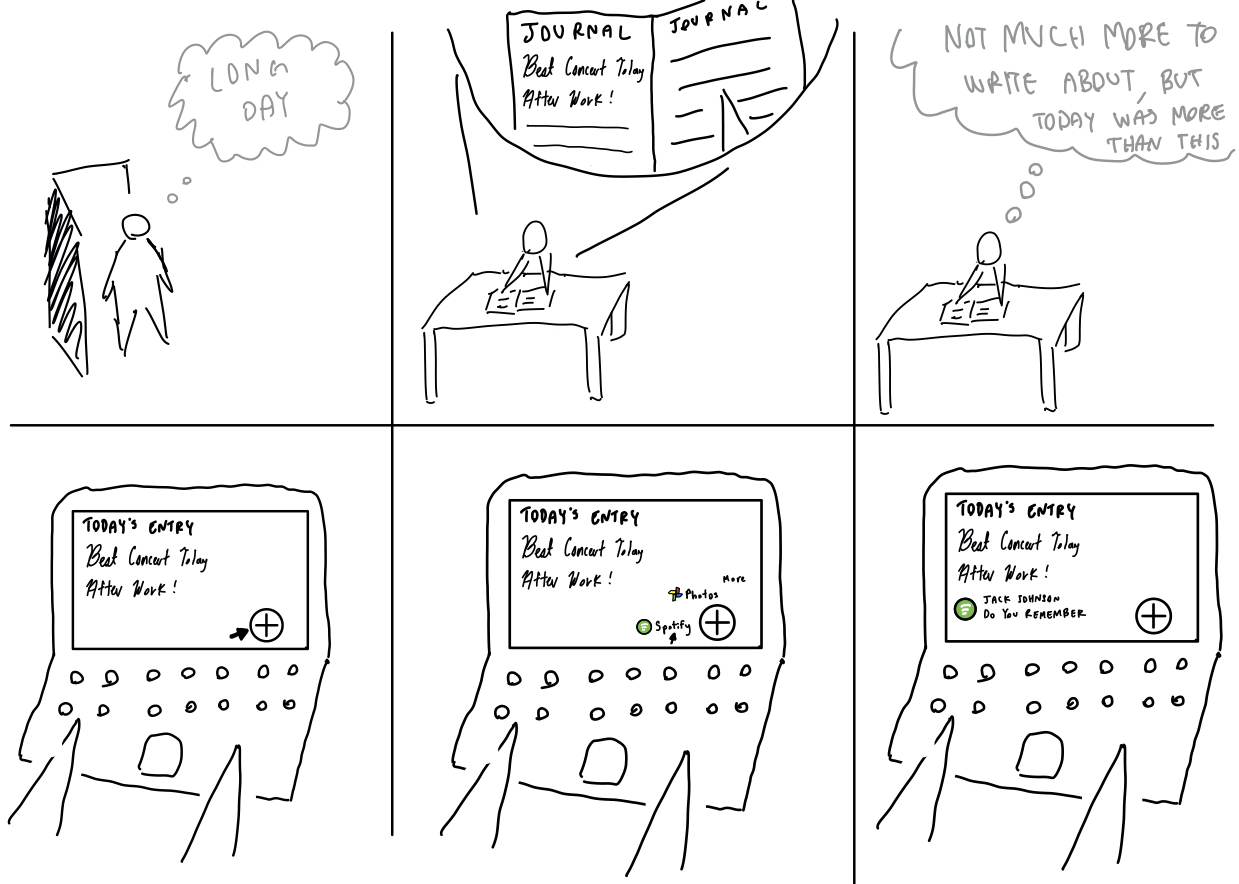 LONG
DAY
JOURNAL
Best Concert Today
After Work!
JOURNAL
NOT MUCH MORE TO
WRITE ABOUT, BUT
TODAY WAS MORE
THAN THIS
TODAY'S ENTRY
Best Concert Today
After Work!
TODAY'S ENTRY
Best Concert Today
After Work!
More
Photos
Spotify
TODAY'S ENTRY
Best Concert Today
After Work!
JACK JOHNSON
DO YOU REMEMBER